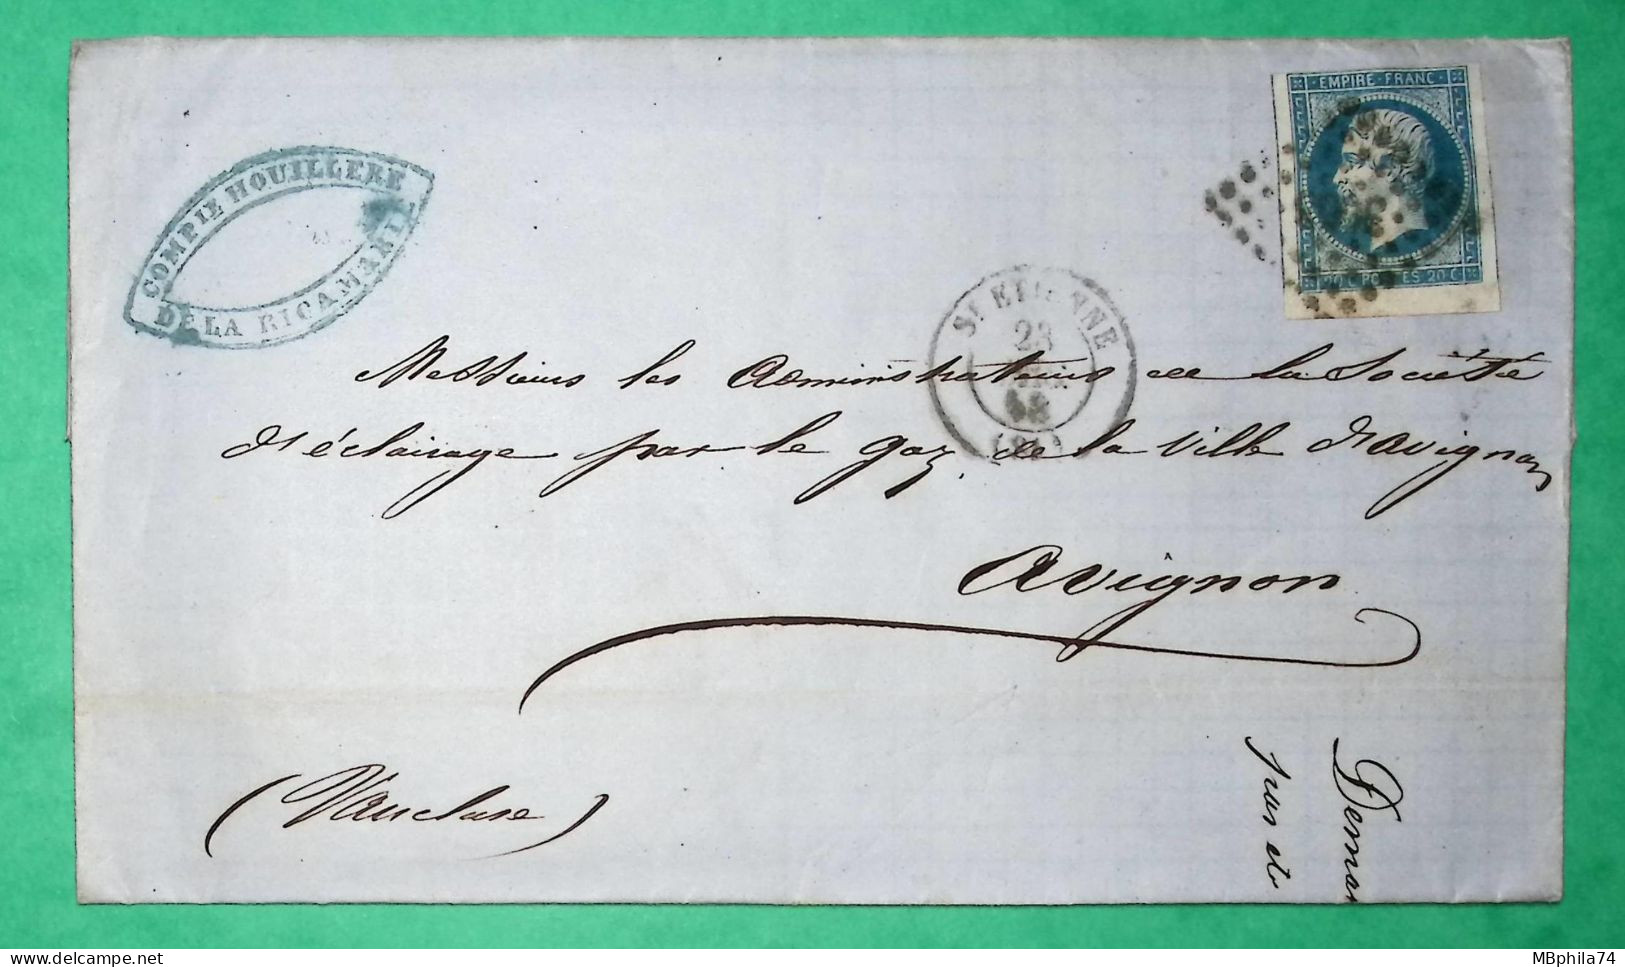 EMPIRE · FRANC ·
20 C POSTES 20 C
COMPIE HOUILLERE
DE LA RICAMARIE
ST ETIENNE
23
68
Messieurs les Administrateurs de la Société
d'éclairage par le gaz de la Ville d'Avignon
Avignon
(Vaucluse)
MBphila74